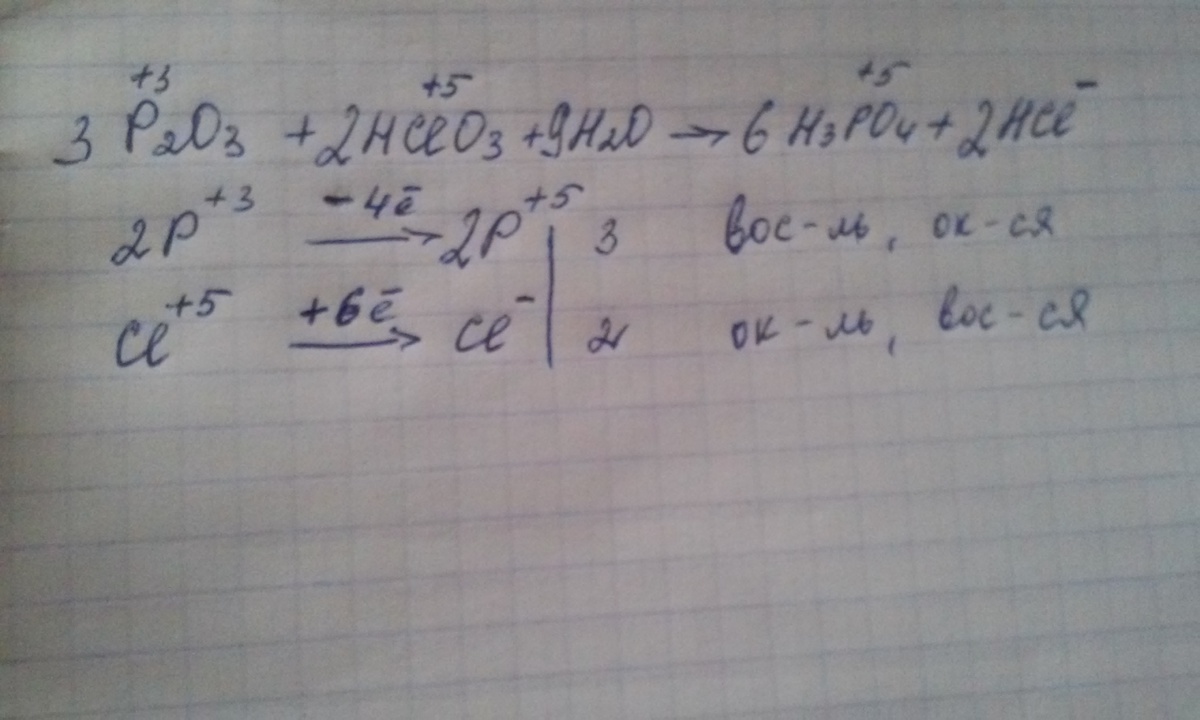 3 P₂⁺³O₃ + 2HCl⁺⁵O₃ + 9H₂O → 6 H₃P⁺⁵O₄ + 2HCl⁻
2P⁺³ -4ē → 2P⁺⁵ | 3 вос-ль, ок-ся
Cl⁺⁵ +6ē → Cl⁻ | 2 ок-ль, вос-ся